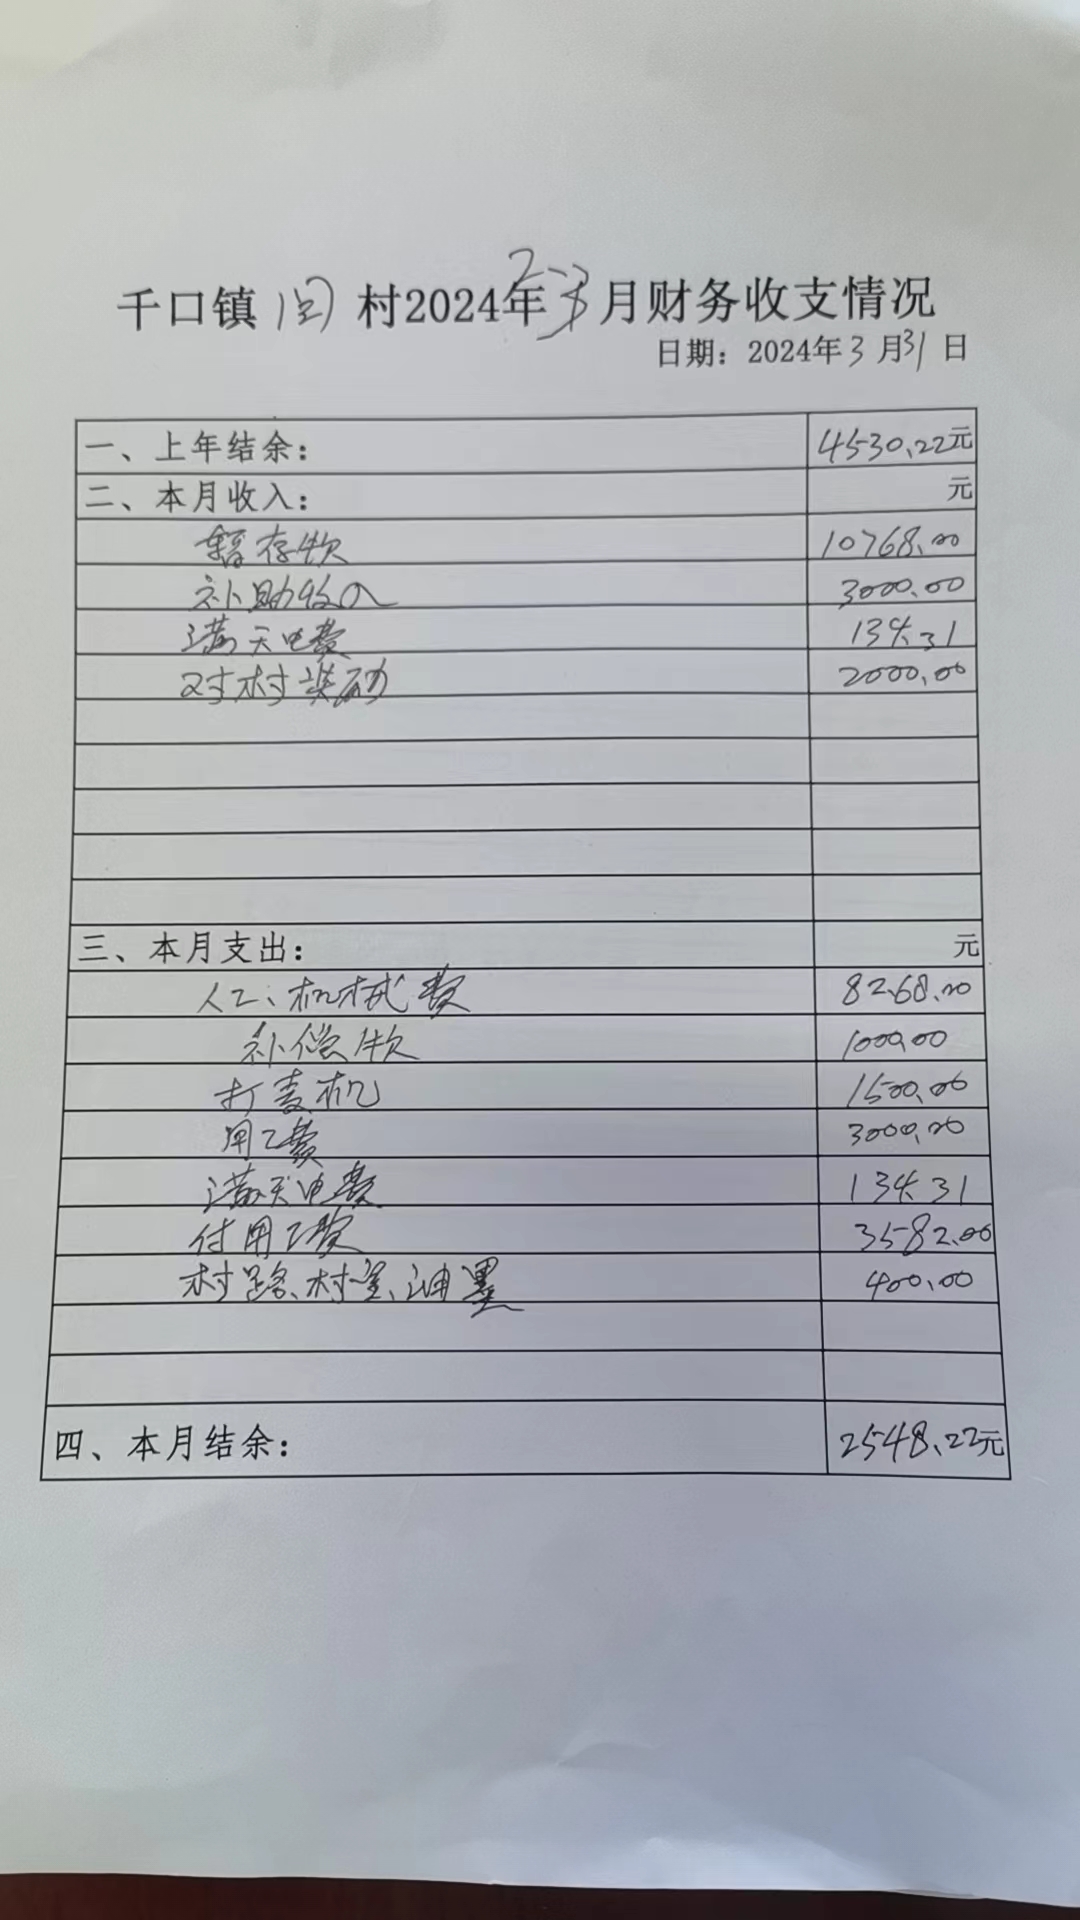 千口镇闫村2024年2-3月财务收支情况
日期：2024年3月31日
一、上年结余： 4530.22元
二、本月收入： 元
暂存款 10768.00
补助收入 3000.00
满天电费 134.31
对村奖励 2000.00
三、本月支出： 元
人工、机械费 8268.00
补偿款 1000.00
打麦机 1500.00
用工费 3000.00
满天电费 134.31
付用工费 3582.00
村路、村室、油墨 400.00
四、本月结余： 2548.22元